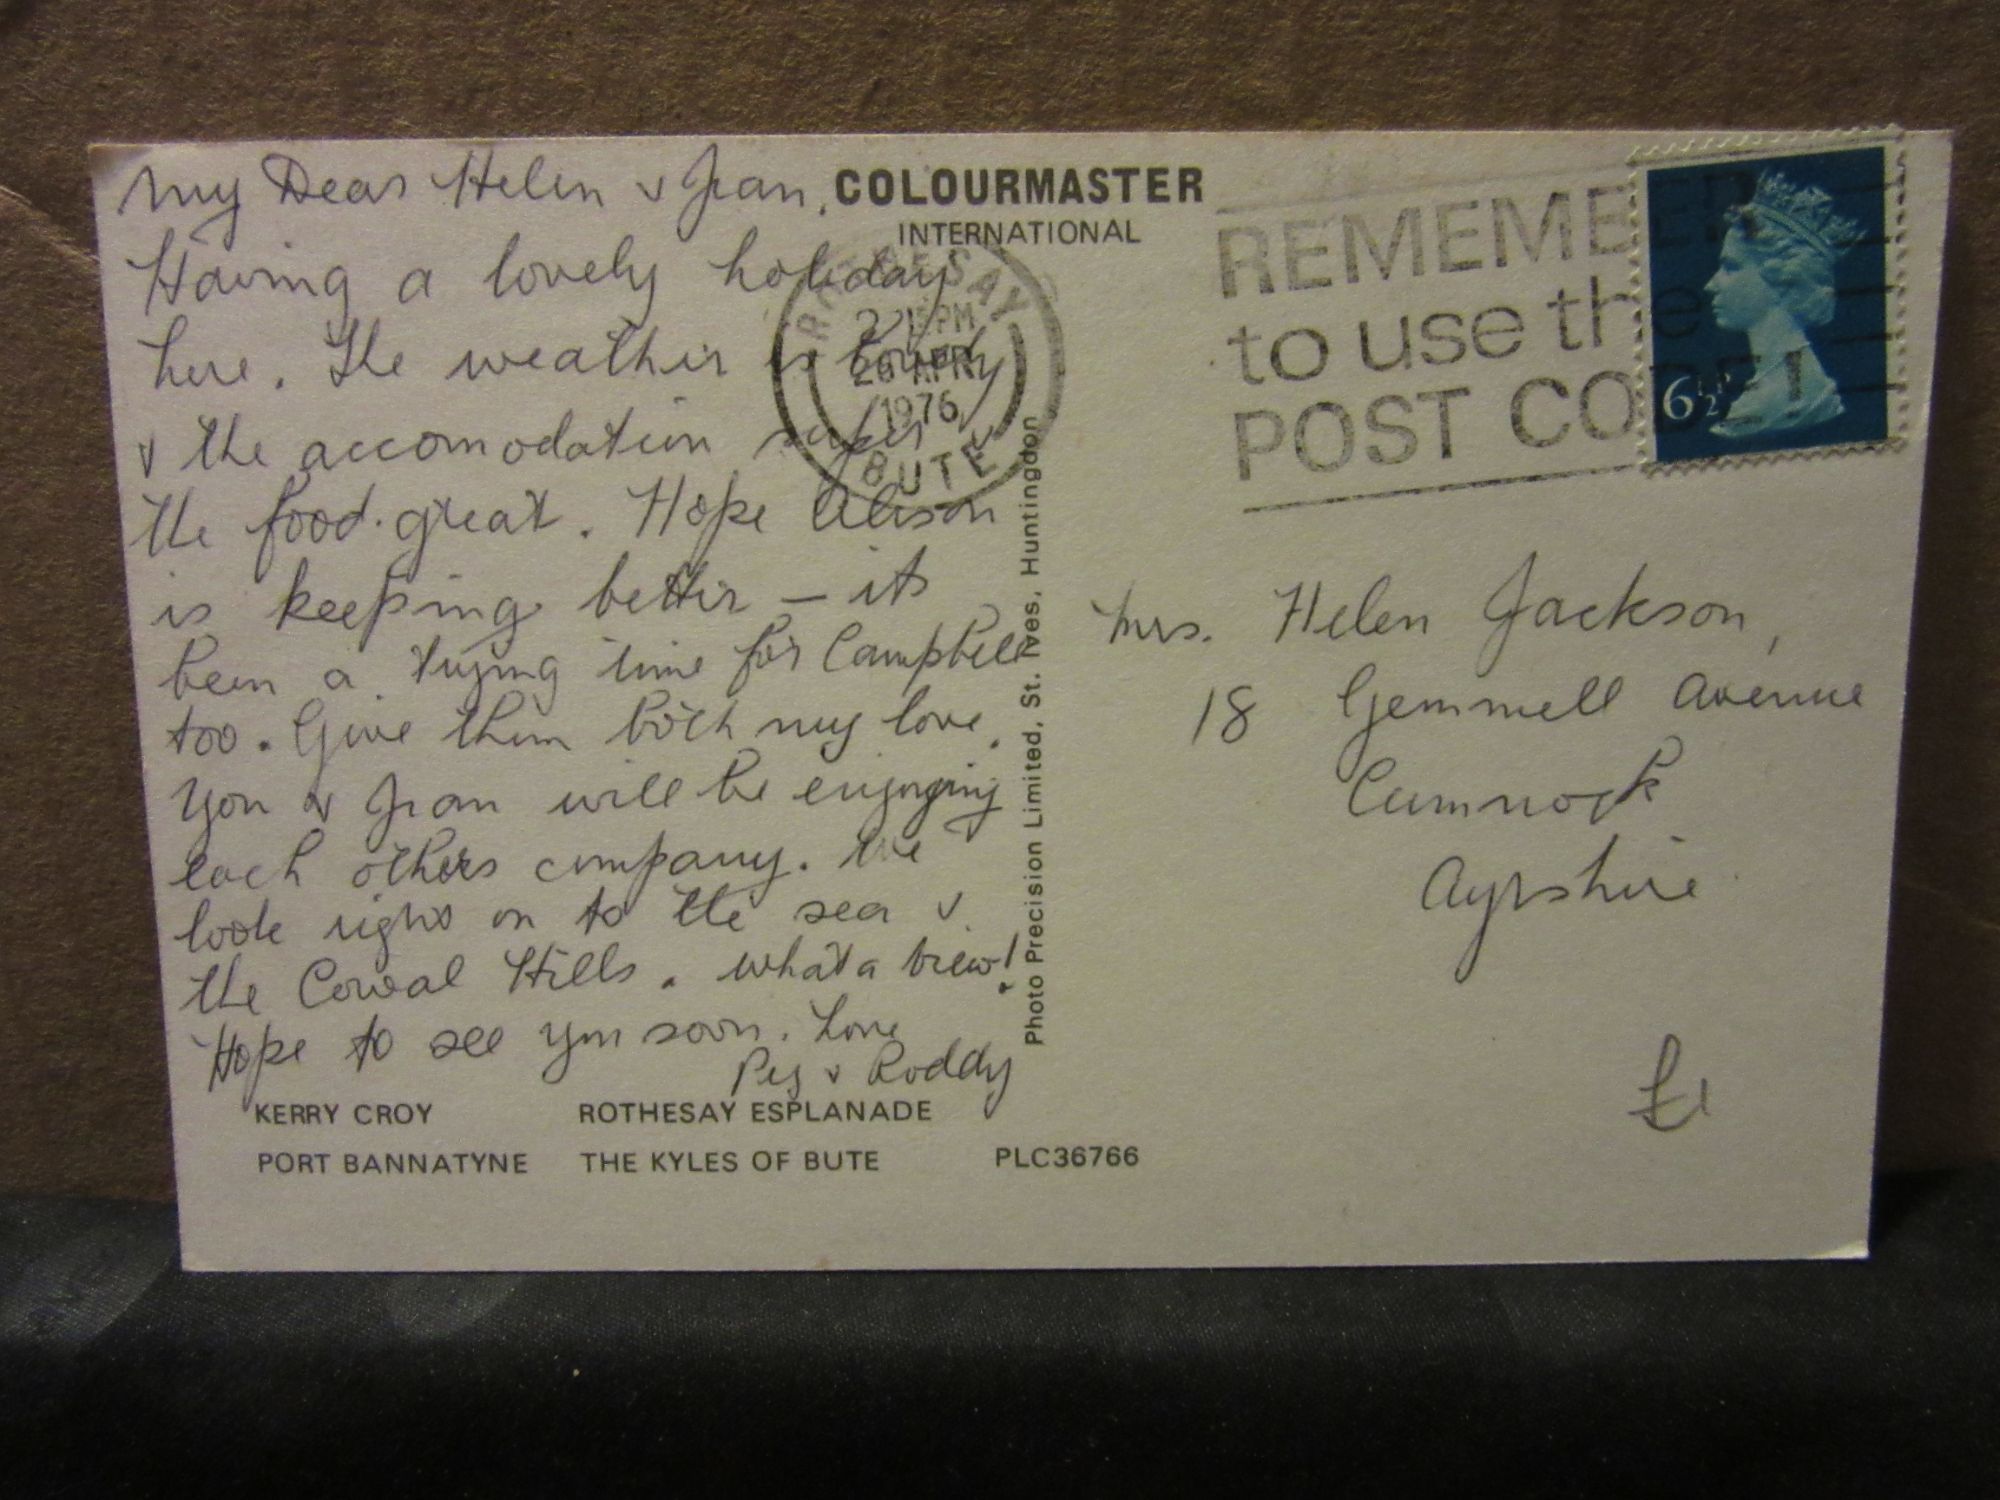 My Dear Helen & Jean,
Having a lovely holiday
here. The weather is lovely
& the accomodation super &
the food great. Hope Alison
is keeping better — its
been a trying time for Campbell
too. Give them both my love.
You & Jean will be enjoying
each others company. We
look right on to the sea &
the Cowal Hills. What a view!
Hope to see you soon. Love
Peg & Roddy
KERRY CROY
ROTHESAY ESPLANADE
PORT BANNATYNE
THE KYLES OF BUTE
PLC36766
COLOURMASTER
INTERNATIONAL
Photo Precision Limited, St. Ives, Huntingdon
ROTHESAY
PM
26 APR
1976
BUTE
REMEMBER
to use the
POST CODE!
6½P
Mrs. Helen Jackson,
18 Gemmell Avenue
Cumnock
Ayrshire
£1